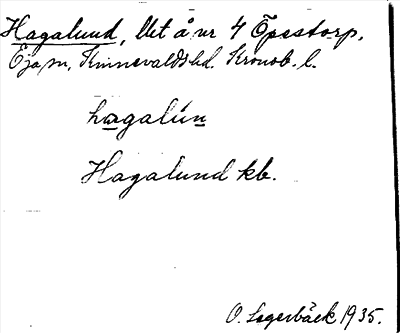 Hagalund, lht å nr 4 Öpestorp,
Öja sn, Kinnevalds hd. Kronob. l.
hagalún
Hagalund kb.
O. Lagerbäck 1935.